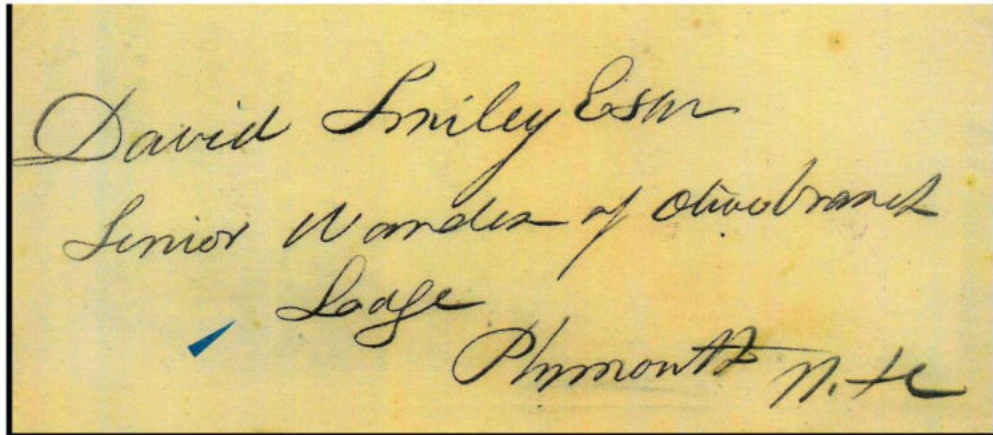 David Smiley Esqr
Senior Warden of Olivebranch
Lodge
Plymouth N. H